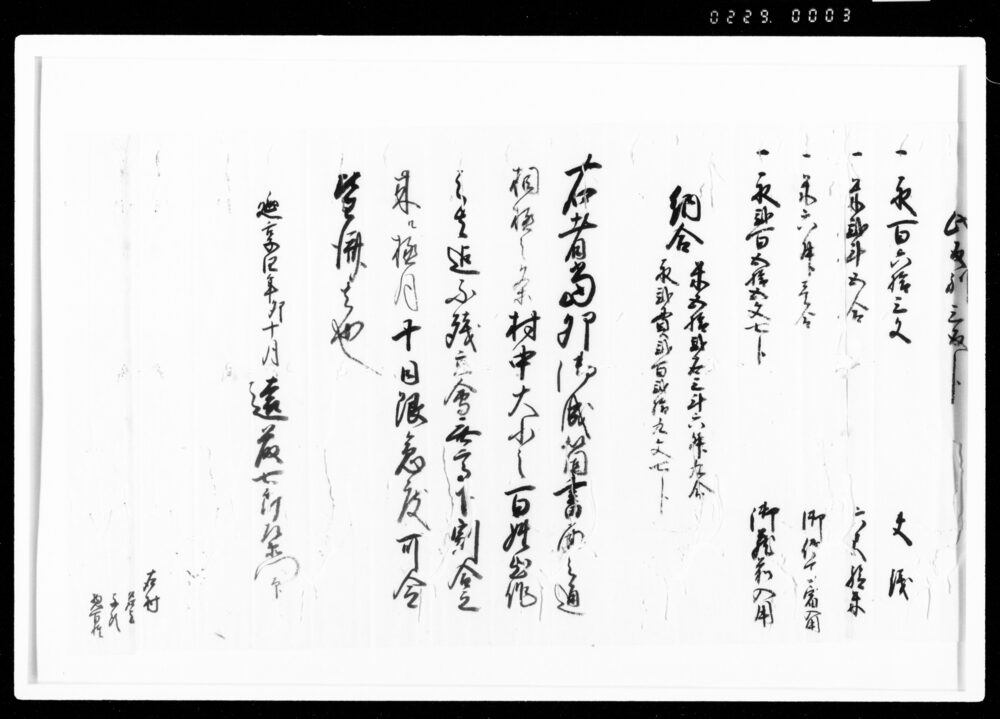 0229. 0003
此取
一永百六拾三文 夫銭
一米弐斗五合 六尺給米
一米六升三合 御伝馬宿入用
一永弐百五拾五文七分 御蔵前入用
納合 米五拾弐石三斗六升九合
永弐貫弐百弐拾九文七分
右者当卯御成箇書面之通
相極之条村中大小之百姓出作
之者迄不残立会無高下割合之
来ル極月十日限急度可令
皆済者也
延享四年卯十月 遠藤七左衛門 印
右村
名主
惣百姓